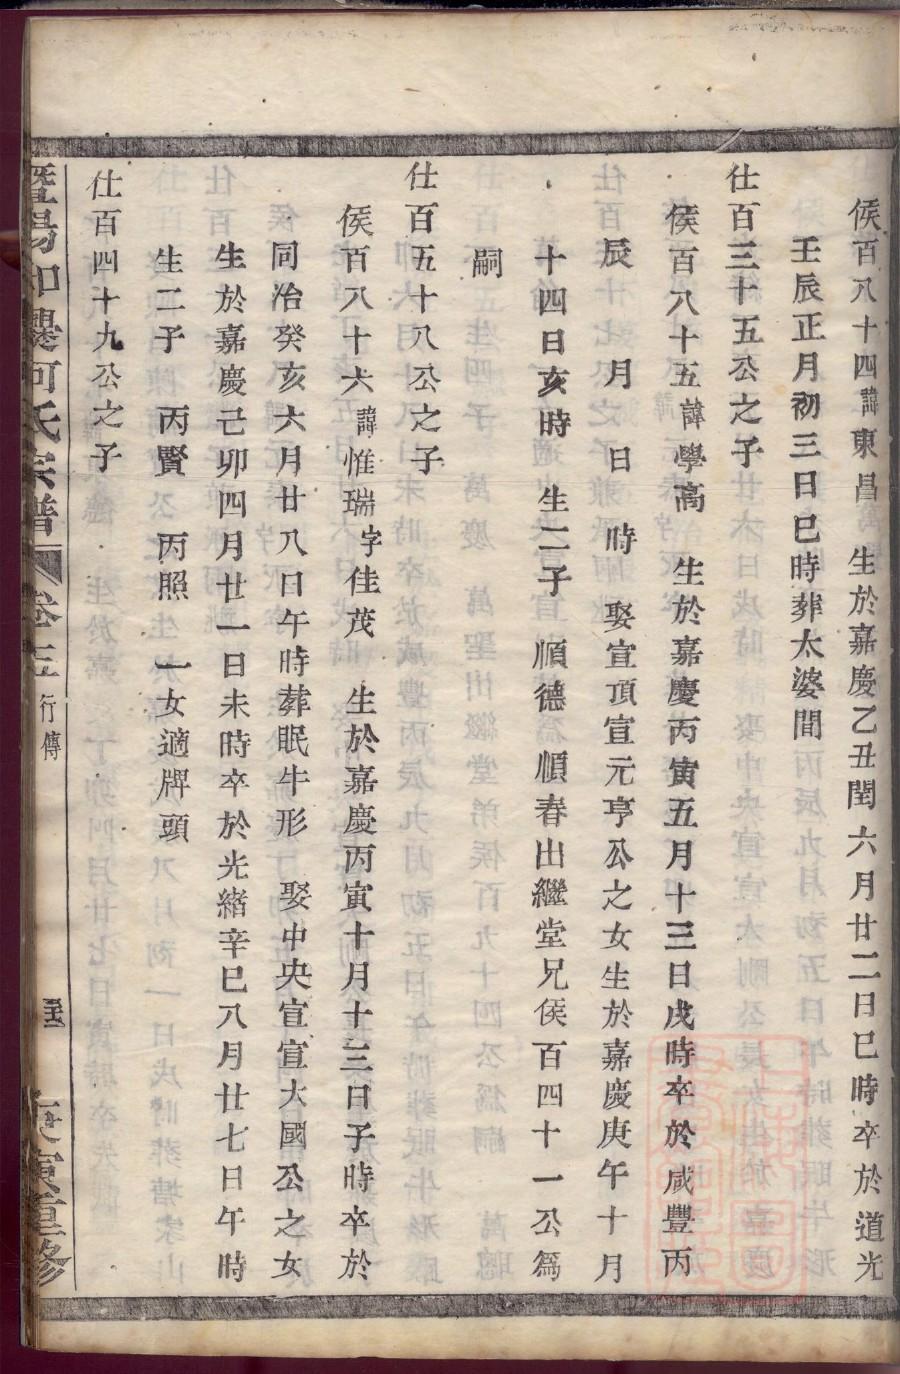 侯百八十四諱東昌 生於嘉慶乙丑閏六月廿二日巳時卒於道光
壬辰正月初三日巳時葬太婆間
仕百三十五公之子
侯百八十五諱學高 生於嘉慶丙寅五月十三日戌時卒於咸豐丙
辰 月 日 時 娶宣頂宣元亨公之女生於嘉慶庚午十月
十四日亥時 生二子 順德 順春出繼堂兄侯百四十一公為
嗣
仕百五十八公之子
侯百八十六諱惟瑞字佳茂 生於嘉慶丙寅十月十三日子時卒於
同治癸亥六月廿八日午時葬眠牛形 娶中央宣宣大國公之女
生於嘉慶己卯四月廿一日未時卒於光緒辛巳八月廿七日午時
生二子 丙賢 丙照 一女適牌頭
仕百四十九公之子
暨陽 河氏宗譜 卷三 行傳 寅重修